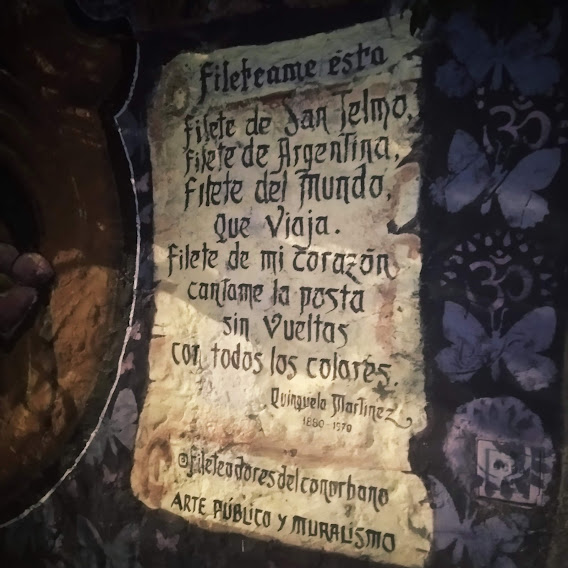 Fileteame ésta
Filete de San Telmo,
Filete de Argentina,
Filete del Mundo,
Que Viaja.
Filete de mi corazón
cantame la posta
sin Vueltas
con todos los colores.
Quinquela Martinez
1880-1970
@fileteadoresdelconurbano
ARTE PÚBLICO Y MURALISMO
ॐ
ॐ